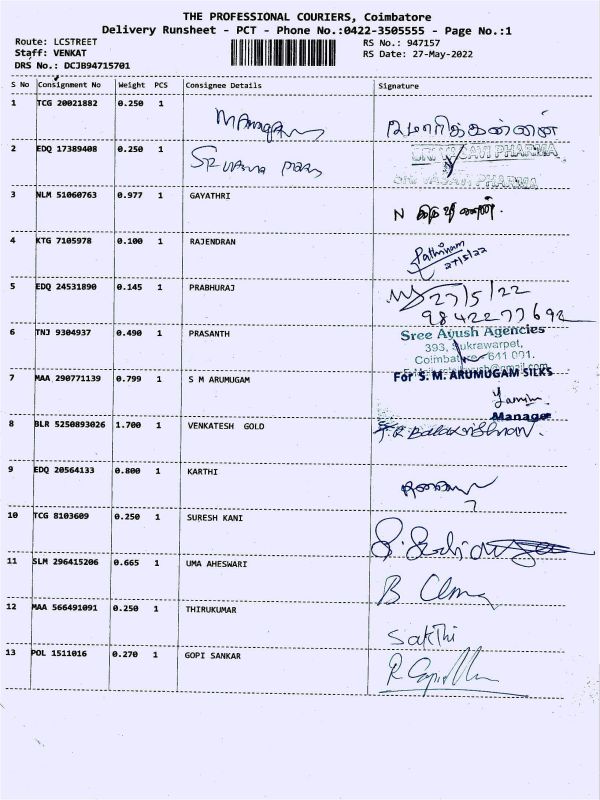 THE PROFESSIONAL COURIERS, Coimbatore
Delivery Runsheet - PCT - Phone No.:0422-3505555 - Page No.:1
Route: LCSTREET
Staff: VENKAT
DRS No.: DCJB94715701
RS No.: 947157
RS Date: 27-May-2022
S No Consignment No Weight PCS Consignee Details Signature
1 TCG 20021882 0.250 1
2 EDQ 17389408 0.250 1
SRI VASAVI PHARMA
SRI VASAVI PHARMA
3 NLM 51060763 0.977 1 GAYATHRI N
4 KTG 7105978 0.100 1 RAJENDRAN Rathinam
27/5/22
5 EDQ 24531890 0.145 1 PRABHURAJ 27/5/22
9842277692
6 TNJ 9304937 0.490 1 PRASANTH Sree Ayush Agencies
393, Sukrawarpet,
Coimbatore - 641 001.
7 MAA 290771139 0.799 1 S M ARUMUGAM For S. M. ARUMUGAM SILKS
Manager
8 BLR 5250893026 1.700 1 VENKATESH GOLD Balakrishnan.
9 EDQ 20564133 0.800 1 KARTHI
10 TCG 8103609 0.250 1 SURESH KANI
11 SLM 296415206 0.665 1 UMA AHESWARI B Uma
12 MAA 566491091 0.250 1 THIRUKUMAR Sakthi
13 POL 1511016 0.270 1 GOPI SANKAR